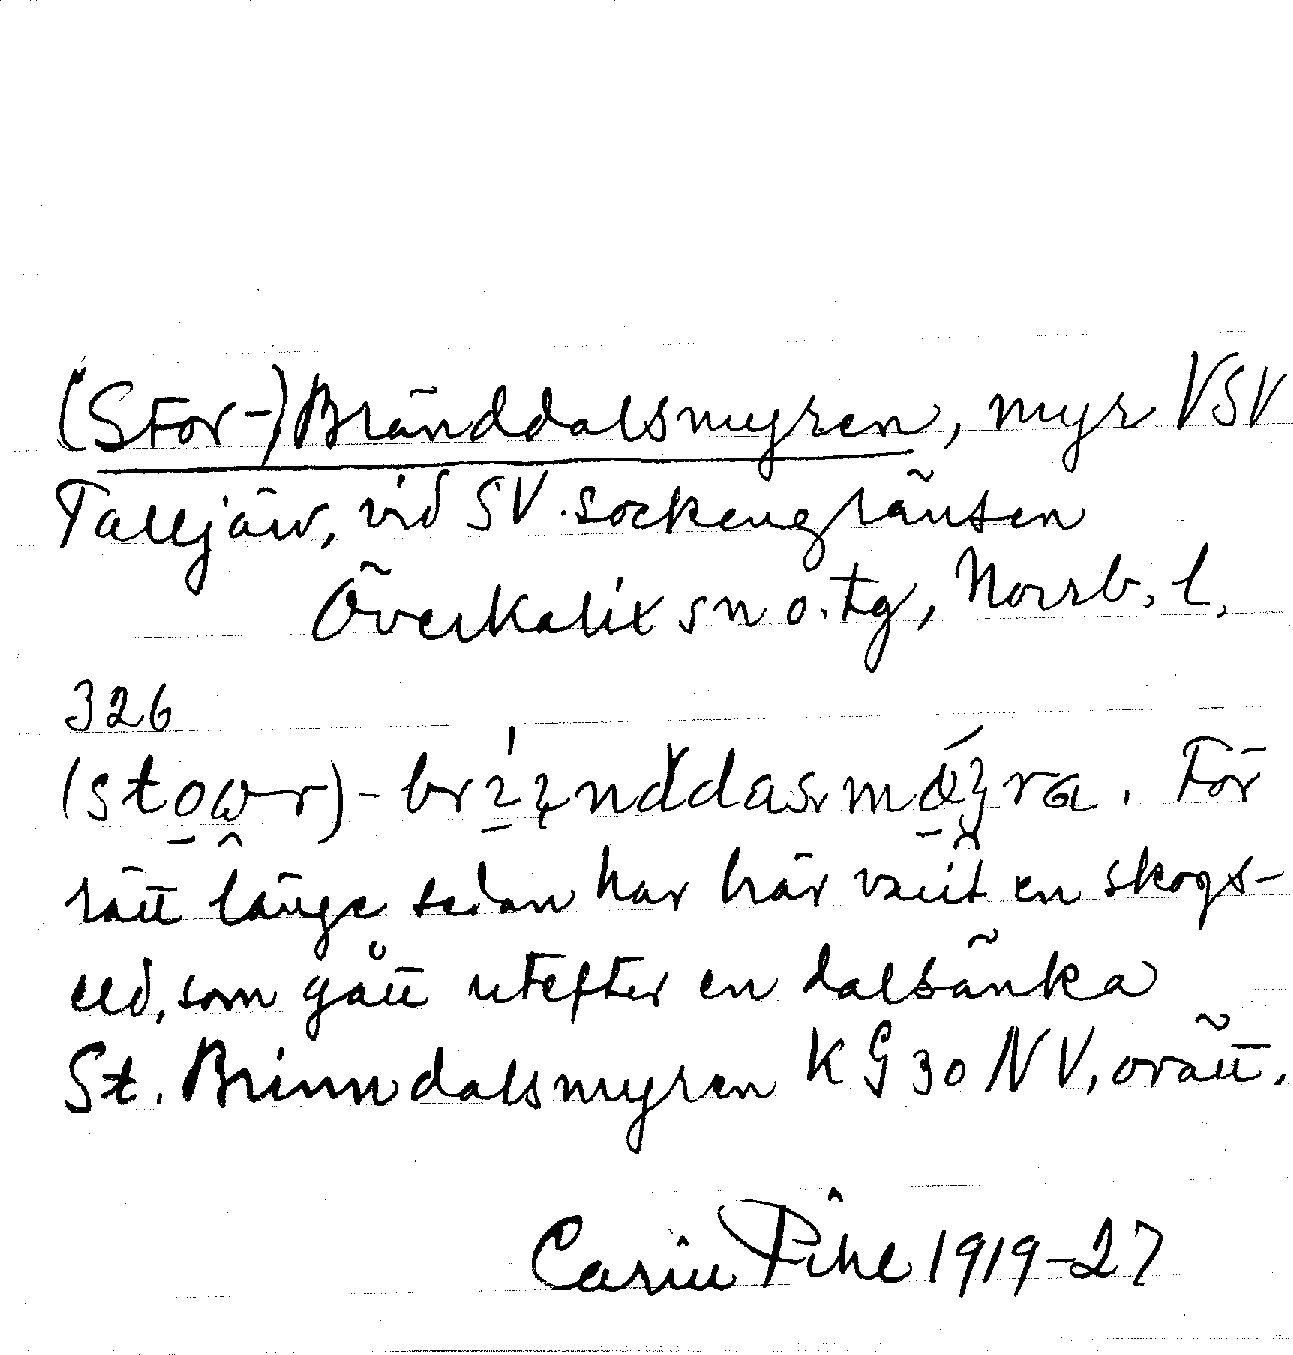 (Stor-)Bränddalsmyren, myr VSV
Talljärv, vid SV. sockengränsen
Överkalix sn o. tg, Norrb. l.
326
(stowr)- För
rätt länge sedan har här varit en skogs-
eld, som gått utefter en dalsänka
St. Brinndalsmyren KG 30 NV, orätt.
Carin Pihl 1919-27